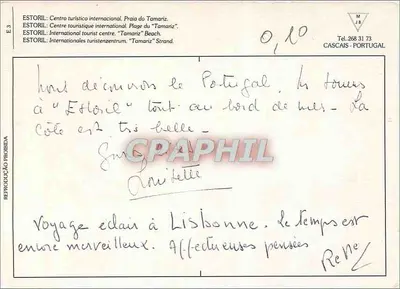 ESTORIL: Centro turístico internacional. Praia do Tamariz.
ESTORIL: Centre touristique international. Plage du "Tamariz".
ESTORIL: International tourist centre. "Tamariz" Beach.
ESTORIL: Internationales turistenzentrum. "Tamariz" Strand.
E.3
M
J B
Tel. 268 31 73
CASCAIS - PORTUGAL
0,10
REPRODUÇÃO PROIBIDA
Nous découvrons le Portugal. Ns sommes
à "Estoril" tout au bord de mer - La
côte est très belle -
CPAPHIL
Louisette
Voyage eclair à LISBONNE. Le temps est
encore merveilleux. Affectueuses pensées